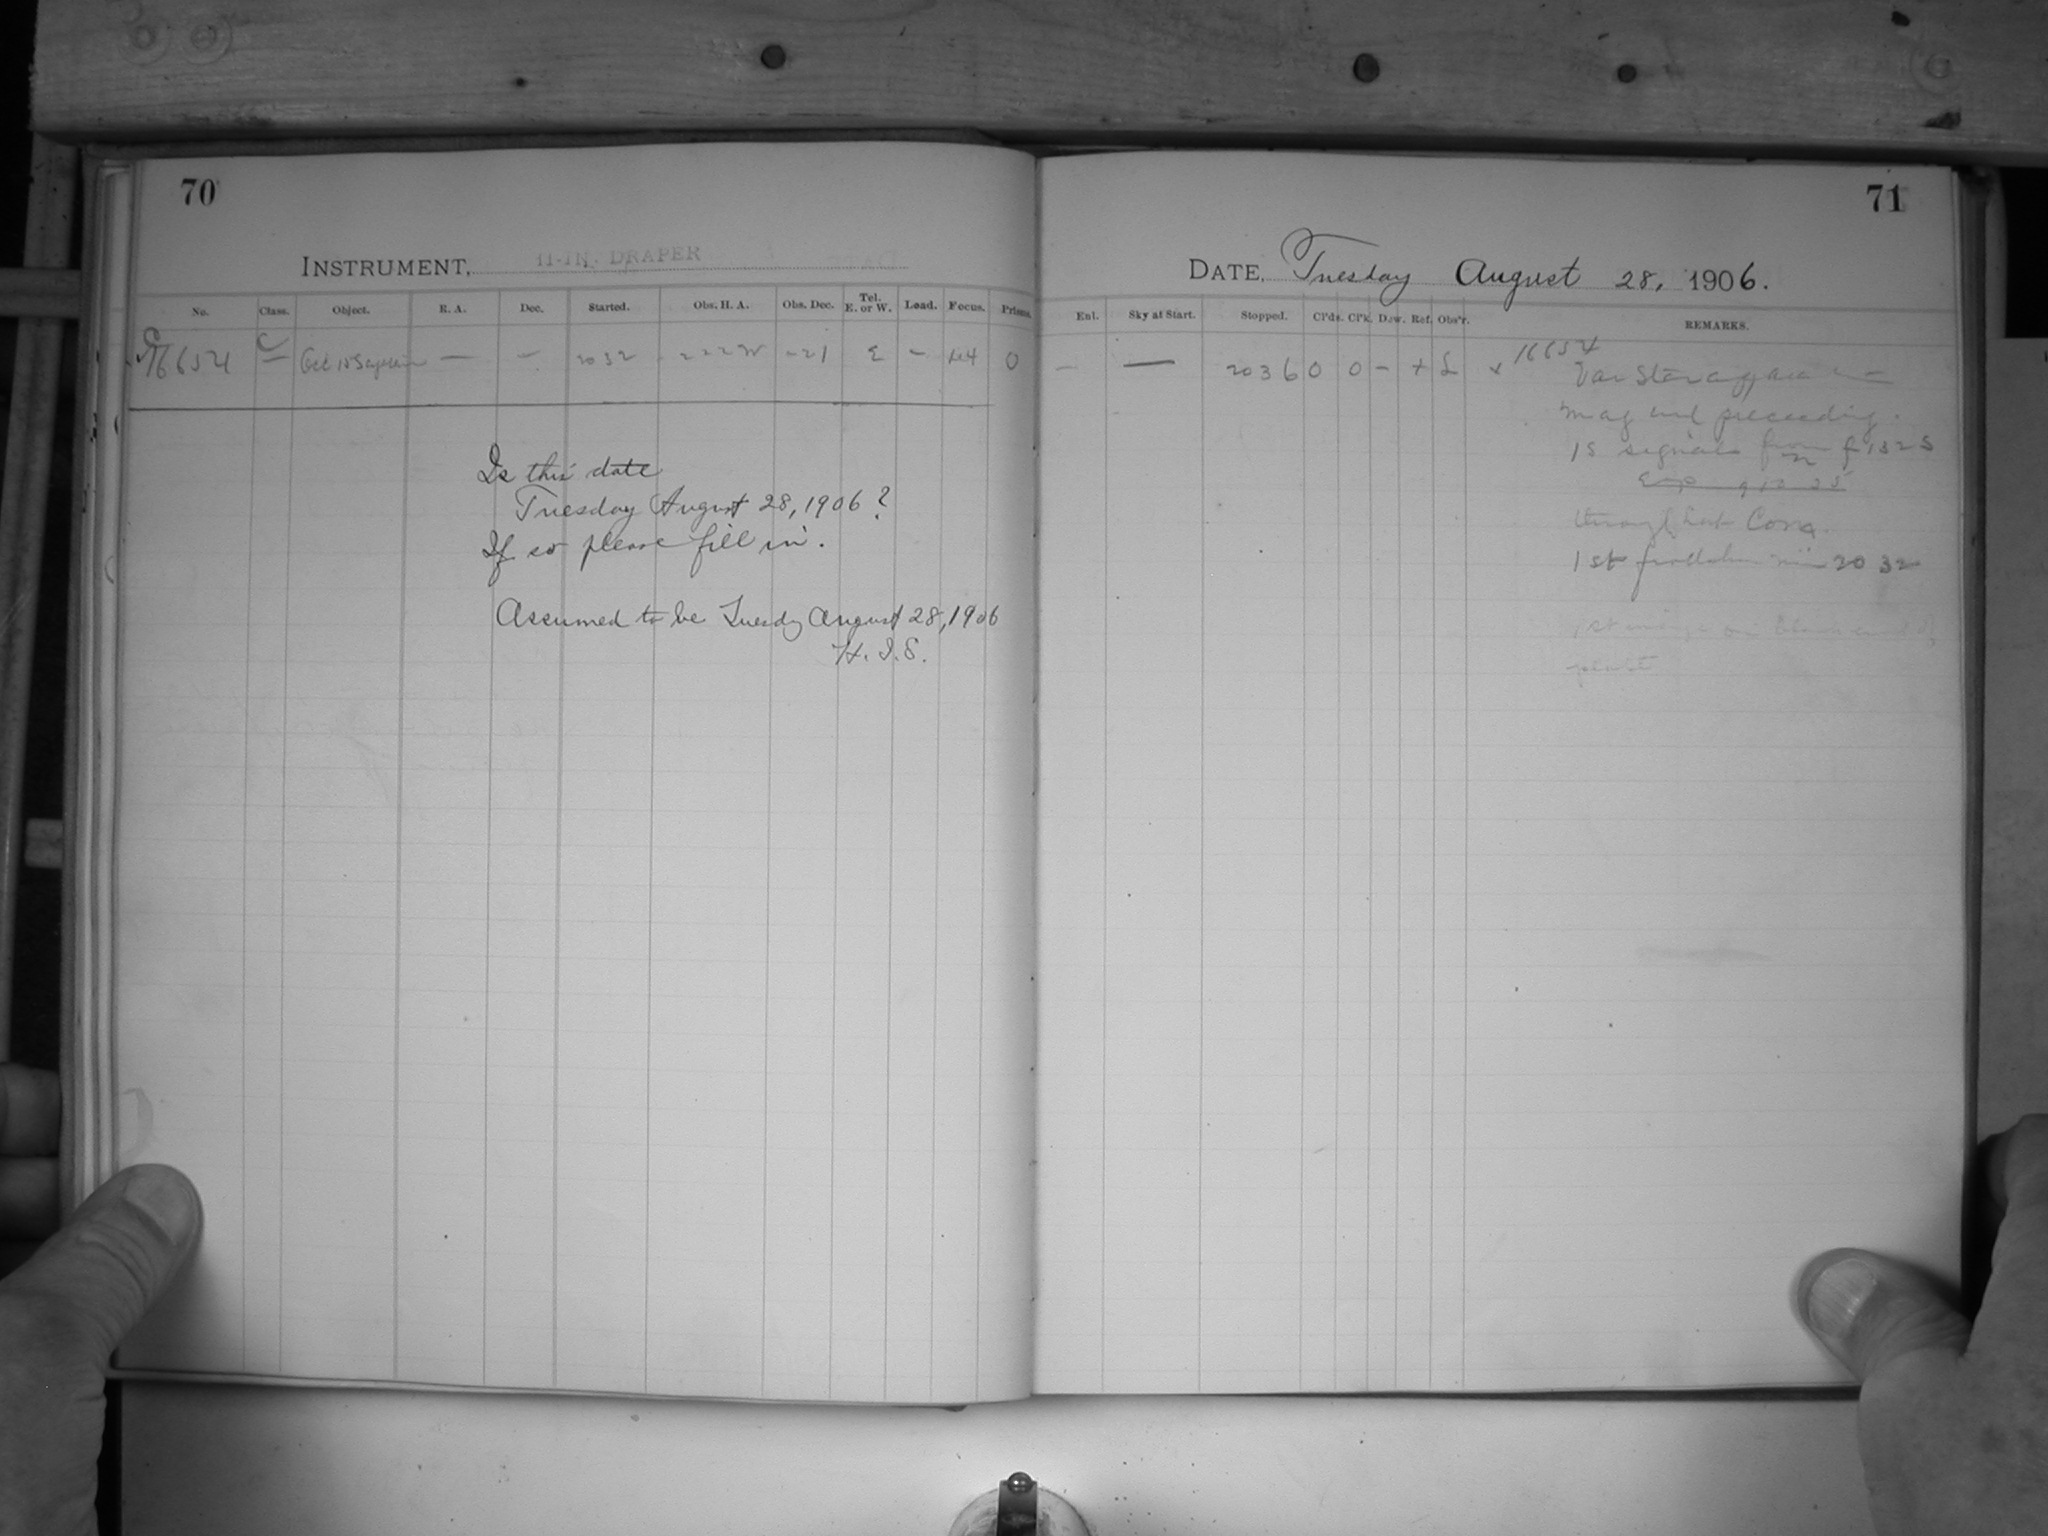 70
INSTRUMENT, 11-IN. DRAPER
No. Class. Object. R. A. Dec. Started. Obs. H. A. Obs. Dec. Tel. E. or W. Load. Focus. Prisms.
16654 C — — 2032 222 W -21 E — 0
Is this date
Tuesday August 28, 1906?
If so please fill in.
Assumed to be Tuesday August 28, 1906
H. I. S.
71
DATE, Tuesday August 28, 1906.
Enl. Sky at Start. Stopped. Cl'ds. Cl'k. Dew. Ref. Obs'r. REMARKS.
— — 2036 0 0 — + L x 16654
Var Star
mag preceeding.
15 signals from
1st 20 32
1st image on end of
plate